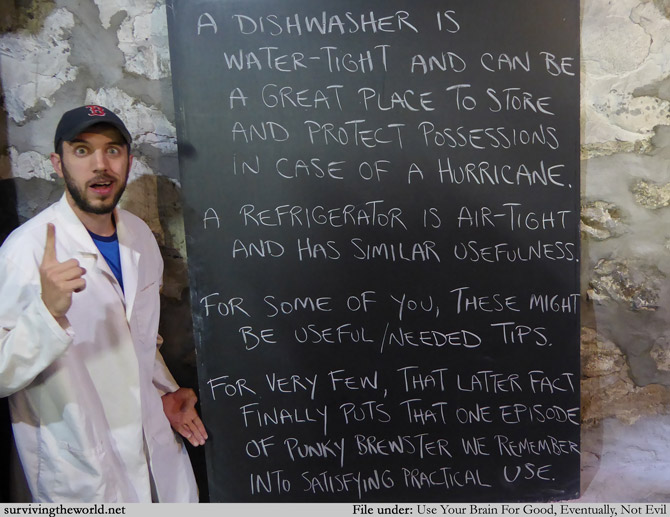 A DISHWASHER IS
WATER-TIGHT AND CAN BE
A GREAT PLACE TO STORE
AND PROTECT POSSESSIONS
IN CASE OF A HURRICANE.
A REFRIGERATOR IS AIR-TIGHT
AND HAS SIMILAR USEFULNESS.
FOR SOME OF YOU, THESE MIGHT
BE USEFUL/NEEDED TIPS.
FOR VERY FEW, THAT LATTER FACT
FINALLY PUTS THAT ONE EPISODE
OF PUNKY BREWSTER WE REMEMBER
INTO SATISFYING PRACTICAL USE.
B
survivingtheworld.net
File under: Use Your Brain For Good, Eventually, Not Evil